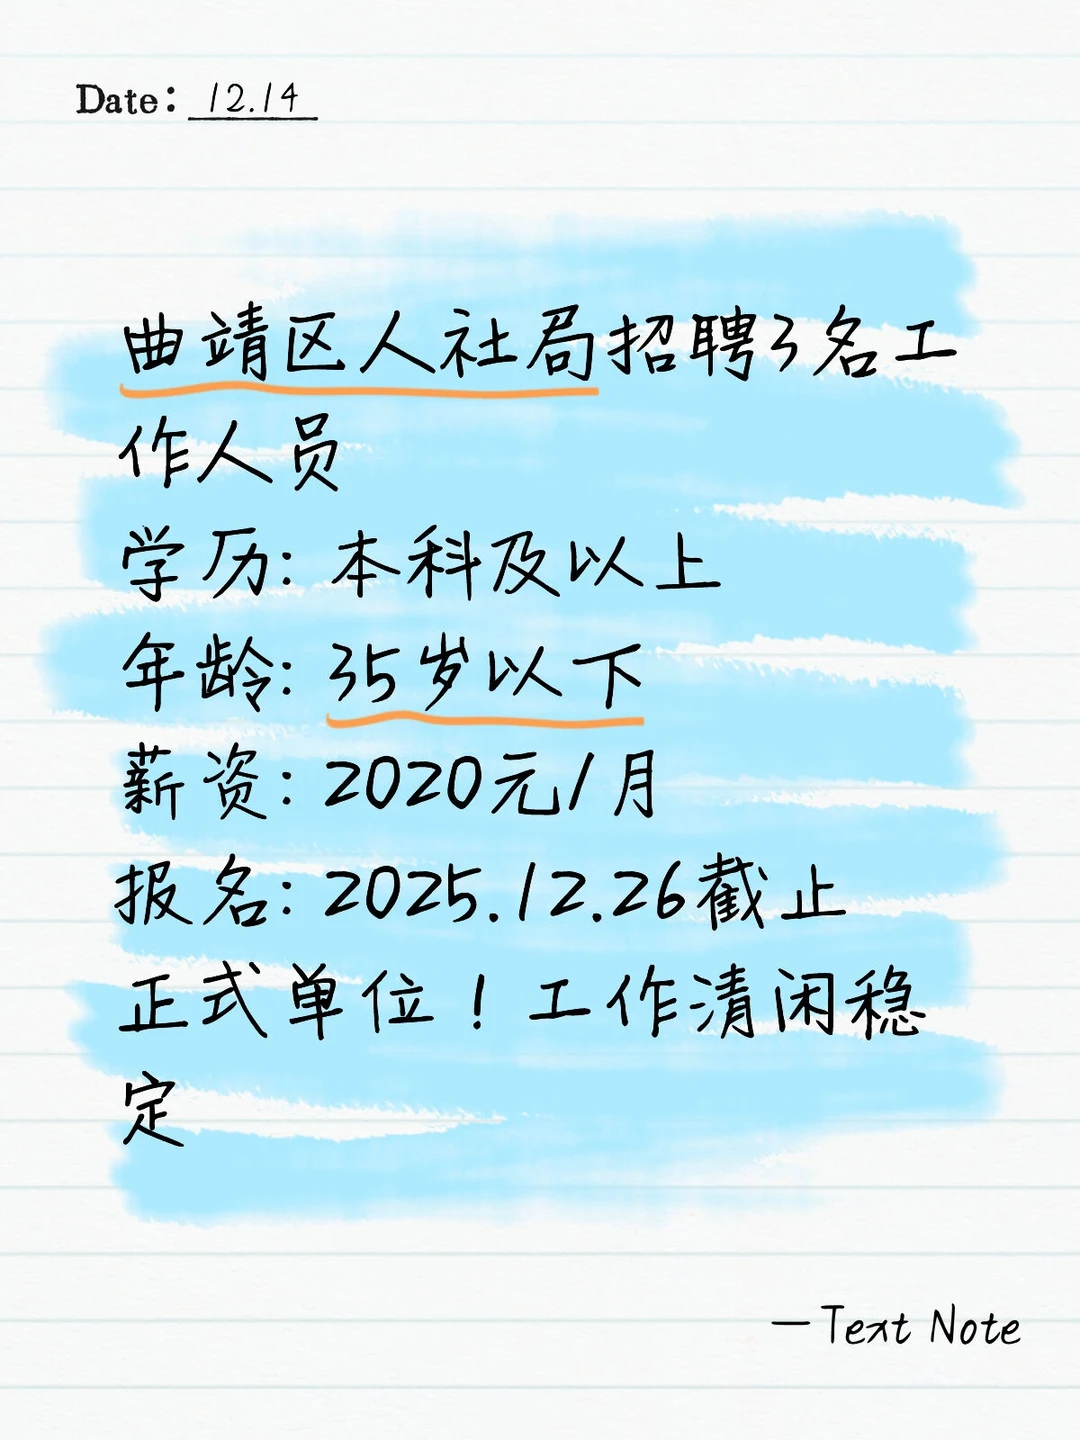 Date: 12.14
曲靖区人社局招聘3名工
作人员
学历: 本科及以上
年龄: 35岁以下
薪资: 2020元/月
报名: 2025.12.26截止
正式单位！工作清闲稳
定
—Text Note